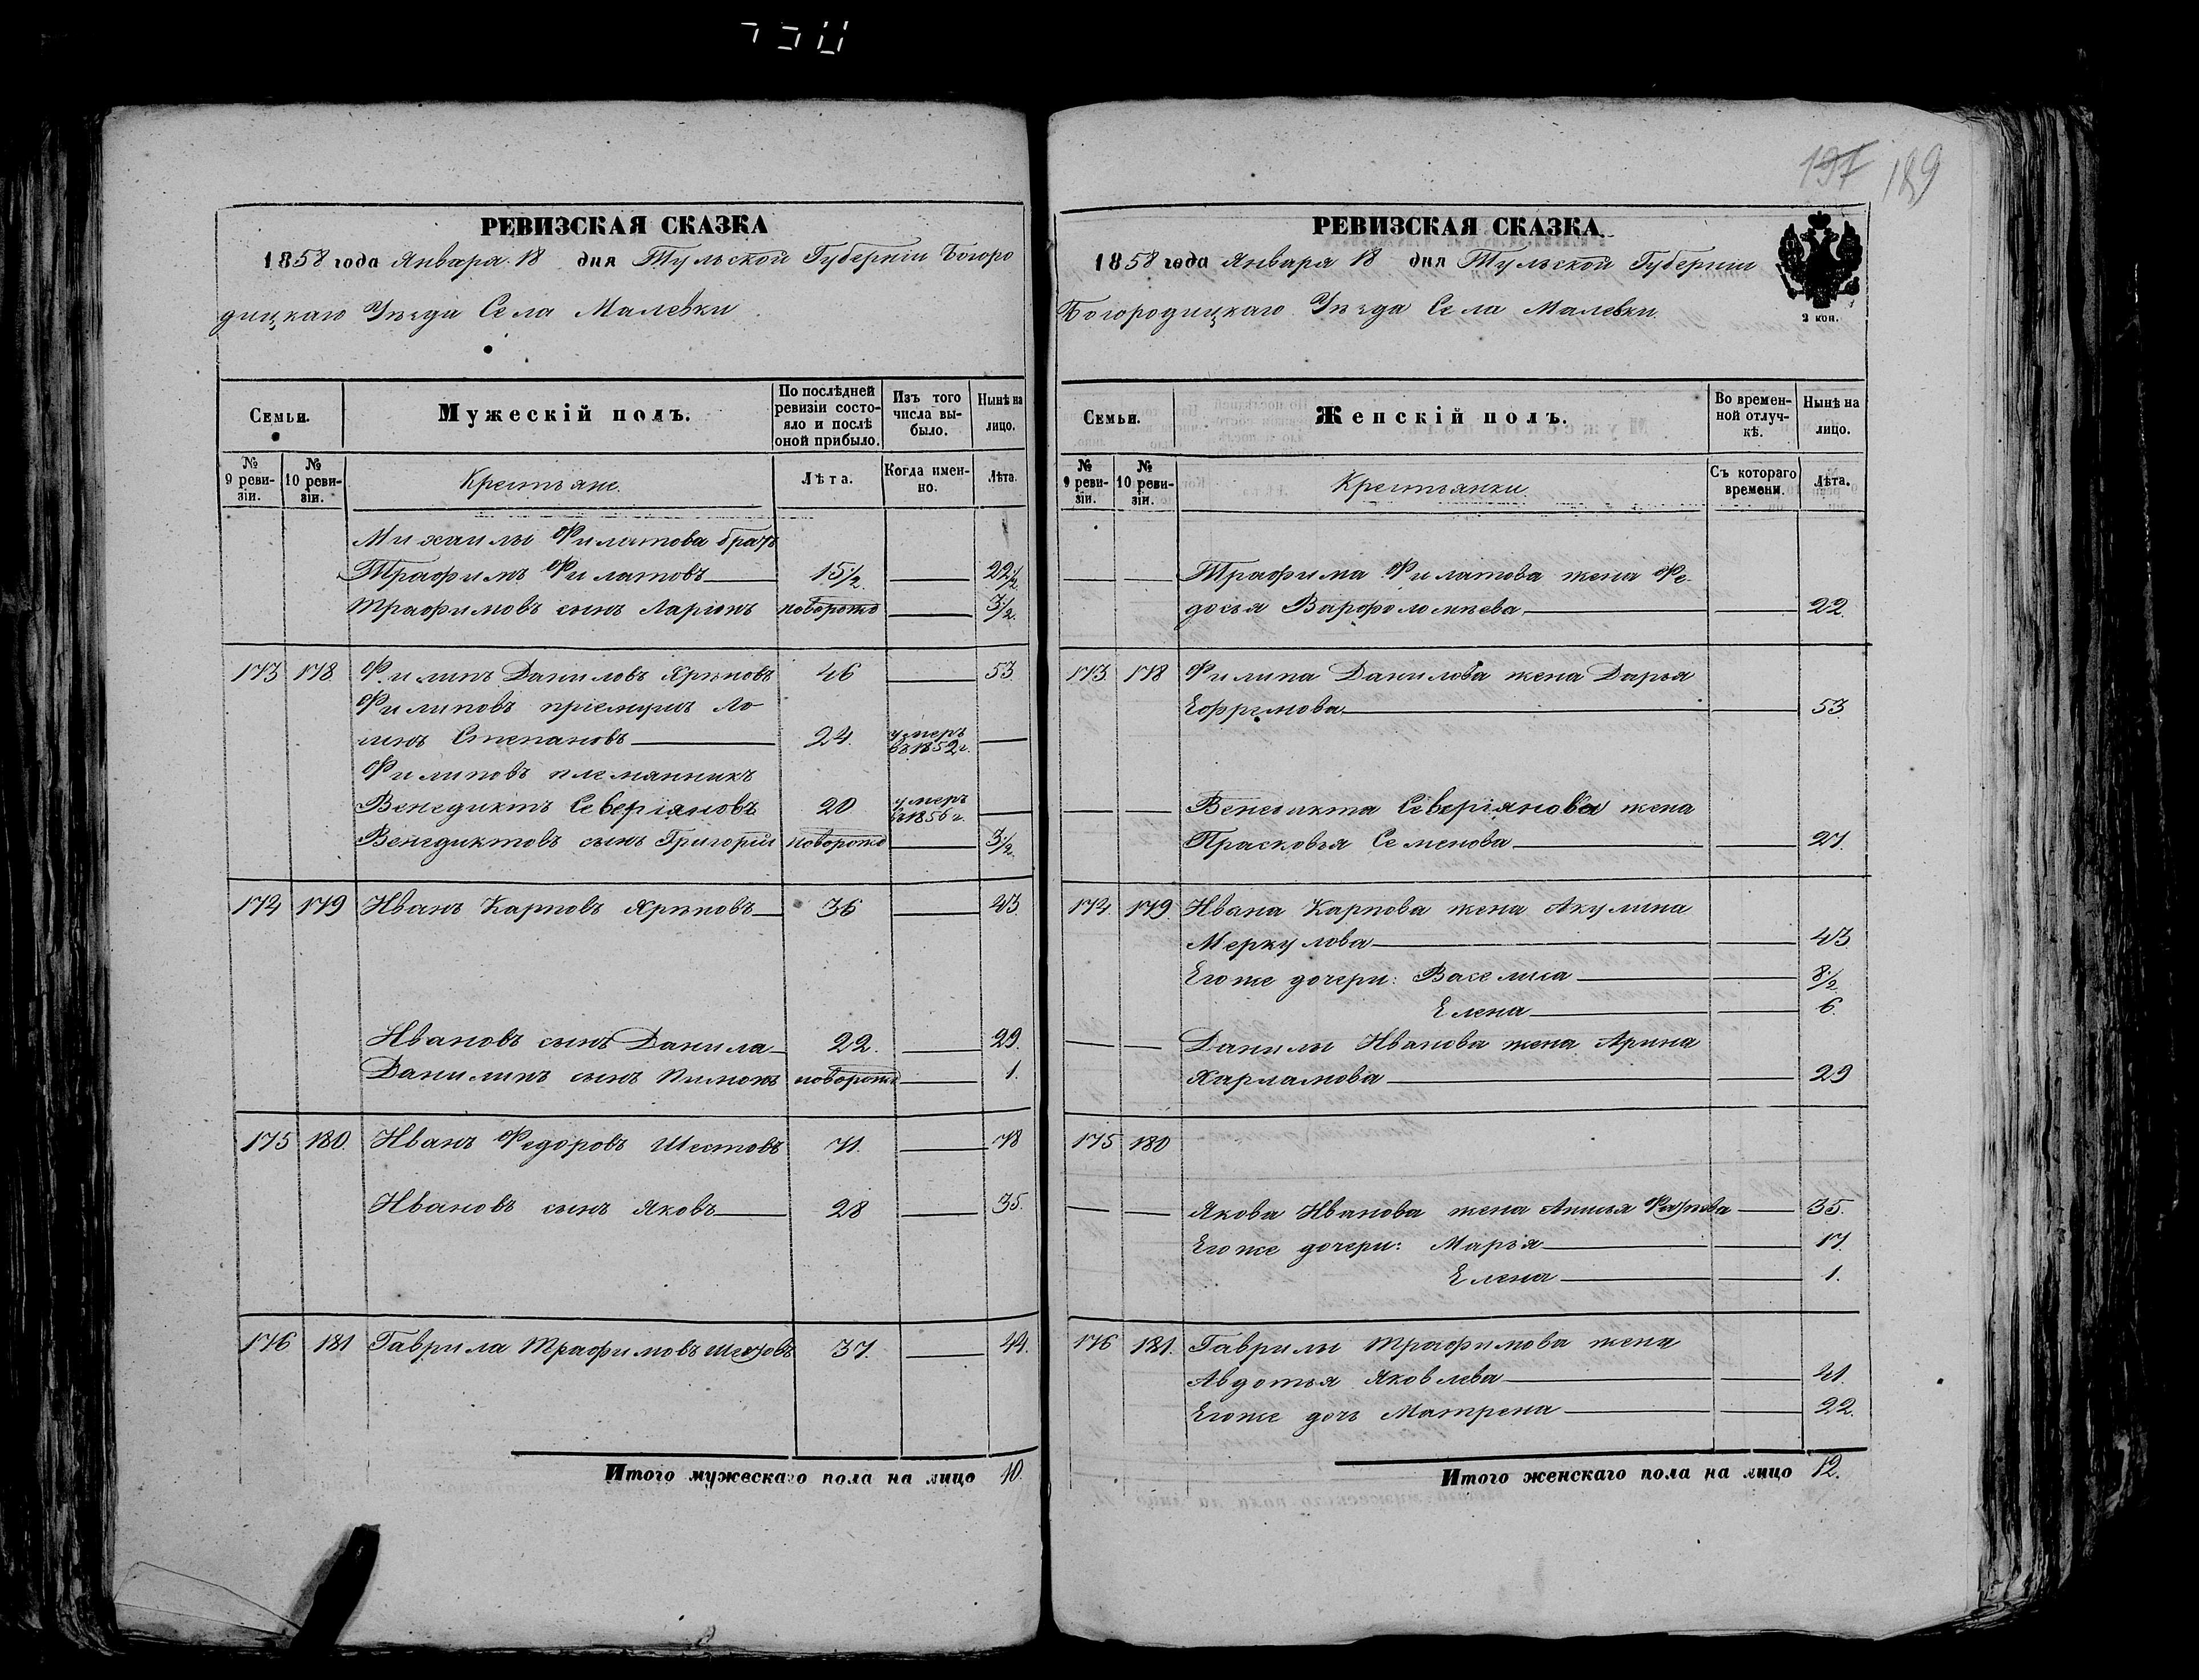 197 189
РЕВИЗСКАЯ СКАЗКА
1858 года Января 18 дня Тульской Губерніи Богоро
дицкаго Уѣзда Села Малевки
Семьи.
Мужескій полъ.
По послѣдней ревизіи состояло и послѣ оной прибыло.
Изъ того числа выбыло.
Нынѣ на лицо.
№ 9 ревизіи.
№ 10 ревизіи.
Крестьяне.
Лѣта.
Когда именно.
Лѣта.
Михаилы Филатова братъ
Трафимъ Филатовъ 15 1/2 22 1/2
Трафимовъ сынъ Ларіонъ новорожд 3 1/2
173 178 Филипъ Даниловъ 46 53
Филиповъ пріемышъ Ло
Степановъ 24. умеръ въ 1852 г.
Филиповъ племянникъ
Венедиктъ Северіяновъ 20 умеръ въ 1856 г.
Венедиктовъ сынъ Григорій новорожд 3 1/2
174 179 Иванъ Карповъ 36 43
Ивановъ сынъ Данила 22. 29.
Данилинъ сынъ Пимонъ новорожд 1.
175 180. Иванъ Федоровъ Шестовъ 71. 78
Ивановъ сынъ Яковъ 28 35.
176 181 Гаврила Трафимовъ Шестовъ 37. 44.
Итого мужескаго пола на лицо 10.
РЕВИЗСКАЯ СКАЗКА.
1858 года Января 18 дня Тульской Губерніи
Богородицкаго Уѣзда Села Малевки.
2 коп.
Семьи.
Женскій полъ.
Во временной отлучкѣ.
Нынѣ на лицо.
№ 9 ревизіи.
№ 10 ревизіи.
Крестьянки.
Съ котораго времени.
Лѣта.
Трафима Филатова жена Ѳе
досья Варфоломѣева 22.
173 178 Филипа Данилова жена Дарья
Ефремова 53
Венедикта Северіянова жена
Прасковья Семенова 27.
174. 179. Ивана Карпова жена Акулина
Меркулова 43
Его же дочери: Васелиса 8 1/2
Елена 6.
Данилы Иванова жена Арина
Харламова 29
175 180
Якова Иванова жена 35.
Его же дочери: Марья 17.
Елена 1.
176 181. Гаврилы Трафимова жена
Авдотья Яковлева 41.
Его же дочь Матрена 22.
Итого женскаго пола на лицо 12.